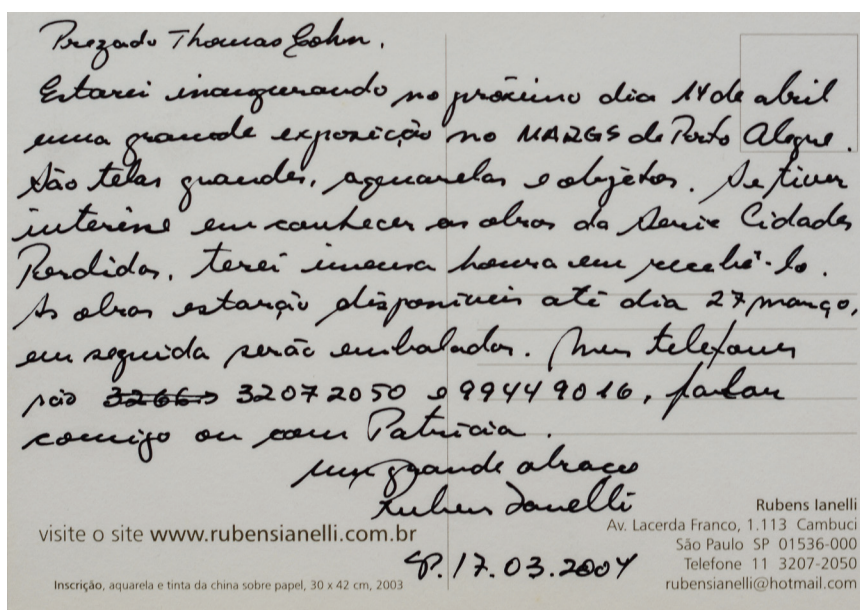 Prezado Thomas Cohn,
Estarei inaugurando no próximo dia 14 de abril
uma grande exposição no MARGS de Porto Alegre.
São telas grandes, aquarelas e objetos. Se tiver
interesse em conhecer as obras da Serie Cidades
Perdidas, terei imensa honra em recebê-lo.
As obras estarão disponíveis até dia 27 março,
em seguida serão embaladas. Meus telefones
são 3266 32072050 e 99449016, falar
comigo ou com Patricia.
um grande abraço
Rubens Ianelli
SP. 17.03.2004
visite o site www.rubensianelli.com.br
Inscrição, aquarela e tinta da china sobre papel, 30 x 42 cm, 2003
Rubens Ianelli
Av. Lacerda Franco, 1.113 Cambuci
São Paulo SP 01536-000
Telefone 11 3207-2050
rubensianelli@hotmail.com